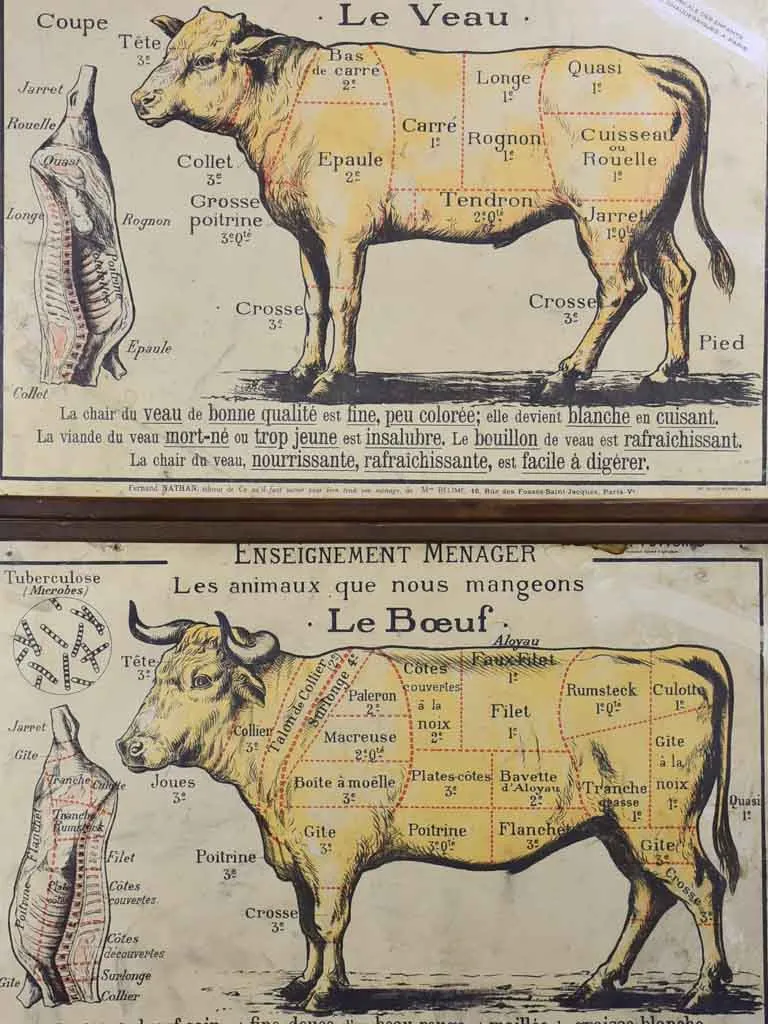 · Le Veau ·
Coupe
Tête
3e
Jarret
Rouelle
Quasi
Longe
Rognon
Poitrine
Epaule
Collet
Bas
de carré
2e
Longe
1e
Quasi
1e
Carré
1e
Rognon
1e
Cuisseau
ou
Rouelle
1e
Epaule
2e
Collet
3e
Grosse
poitrine
3e Qté
Tendron
2e Qté
Jarret
1e Qté
Crosse
3e
Crosse
3e
Pied
La chair du veau de bonne qualité est fine, peu colorée; elle devient blanche en cuisant.
La viande du veau mort-né ou trop jeune est insalubre. Le bouillon de veau est rafraîchissant.
La chair du veau, nourrissante, rafraîchissante, est facile à digérer.
Fernand NATHAN, éditeur de Ce qu'il faut savoir pour bien tenir son ménage, de Mme BELIME, 16, Rue des Fossés-Saint-Jacques, Paris-Ve
ENSEIGNEMENT MÉNAGER
Les animaux que nous mangeons
· Le Bœuf ·
Tuberculose
(Microbes)
Tête
3e
Aloyau
Faux Filet
1e
Talon de Collier 2e
Surlonge 4e
Collier
3e
Paleron
2e
Côtes
couvertes
à la
noix
2e
Filet
1e
Rumsteck
1e Qté
Culotte
1e
Macreuse
2e Qté
Gîte
à la
noix
1e
Joues
3e
Boîte à moëlle
3e
Plates-côtes
3e
Bavette
d'Aloyau
2e
Tranche
grasse
1e
Quasi
1e
Gîte
3e
Poitrine
3e Qté
Flanchet
3e
Gîte
3e
Crosse
3e
Poitrine
3e
Crosse
3e
Jarret
Gîte
Tranche
Culotte
Tranche
Rumsteck
Flanchet
Filet
Poitrine
Plates
côtes
Côtes
couvertes
Côtes
découvertes
Surlonge
Gîte
Collier